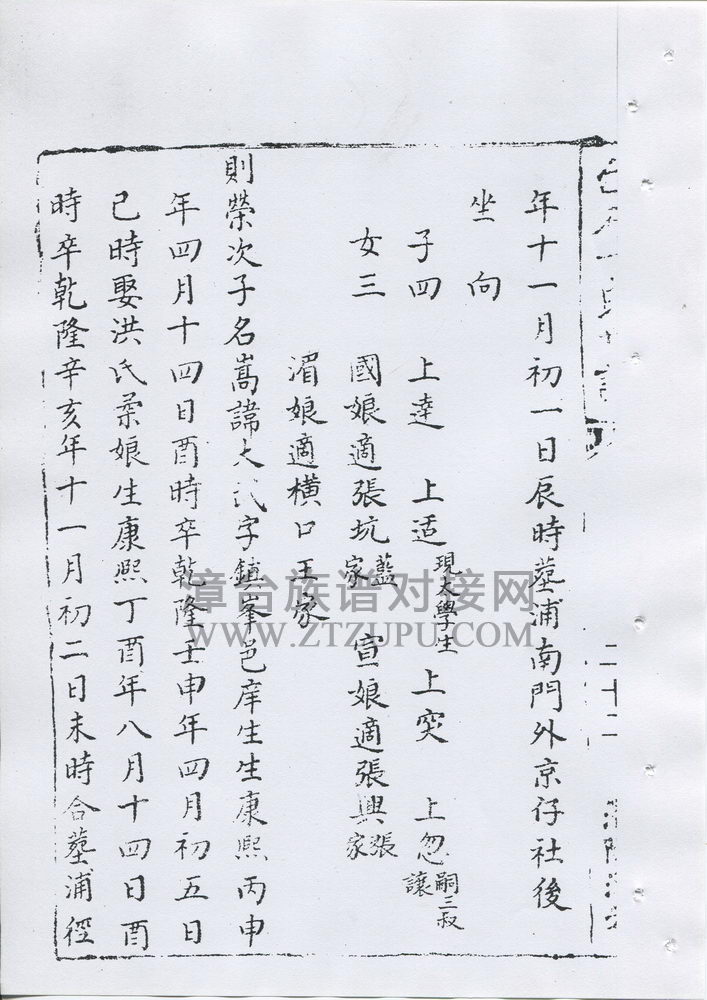 二十二
年十一月初一日辰時塟浦南門外京仔社後
坐向
子四 上達 上适現太學生 上突 上忽嗣三叔讓
女三 國娘適張坑藍家 宣娘適張興張家
湄娘適橫口王家
則榮次子名嵩諱大 字鎮峯邑庠生生康熙丙申
年四月十四日酉時卒乾隆壬申年四月初五日
巳時娶洪氏柔娘生康熙丁酉年八月十四日酉
時卒乾隆辛亥年十一月初二日未時合塟浦徑
漳台族谱对接网
WWW.ZTZUPU.COM